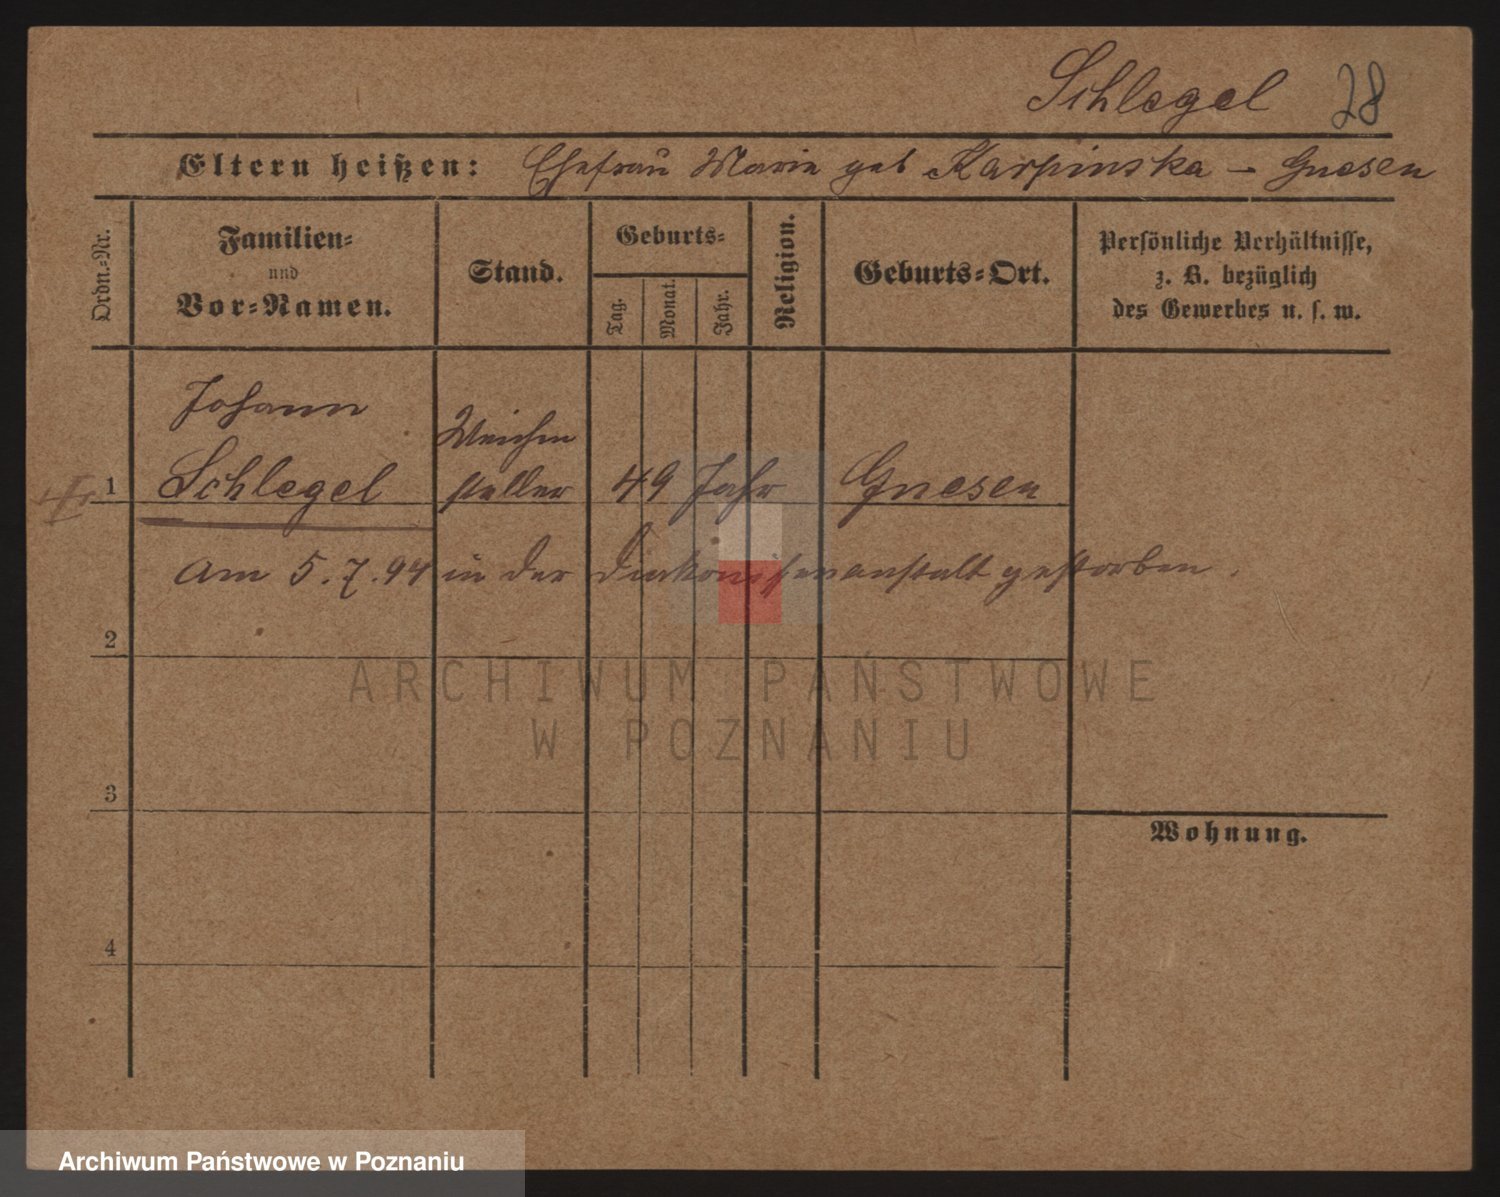 Schlegel 28
Eltern heißen: Ehefrau Marie geb Karpinska – Gnesen
Ordn.-Nr.
Familien-
und
Vor-Namen.
Stand.
Geburts-
Tag.
Monat.
Jahr.
Religion.
Geburts-Ort.
Persönliche Verhältnisse,
z. B. bezüglich
des Gewerbes u. s. w.
Johann
Schlegel
Weichen
steller
1
49 Jahr
Gnesen
am 5.7.94 in der Diakonissenanstalt gestorben.
2
ARCHIWUM PAŃSTWOWE
W POZNANIU
3
Wohnung.
4
Archiwum Państwowe w Poznaniu